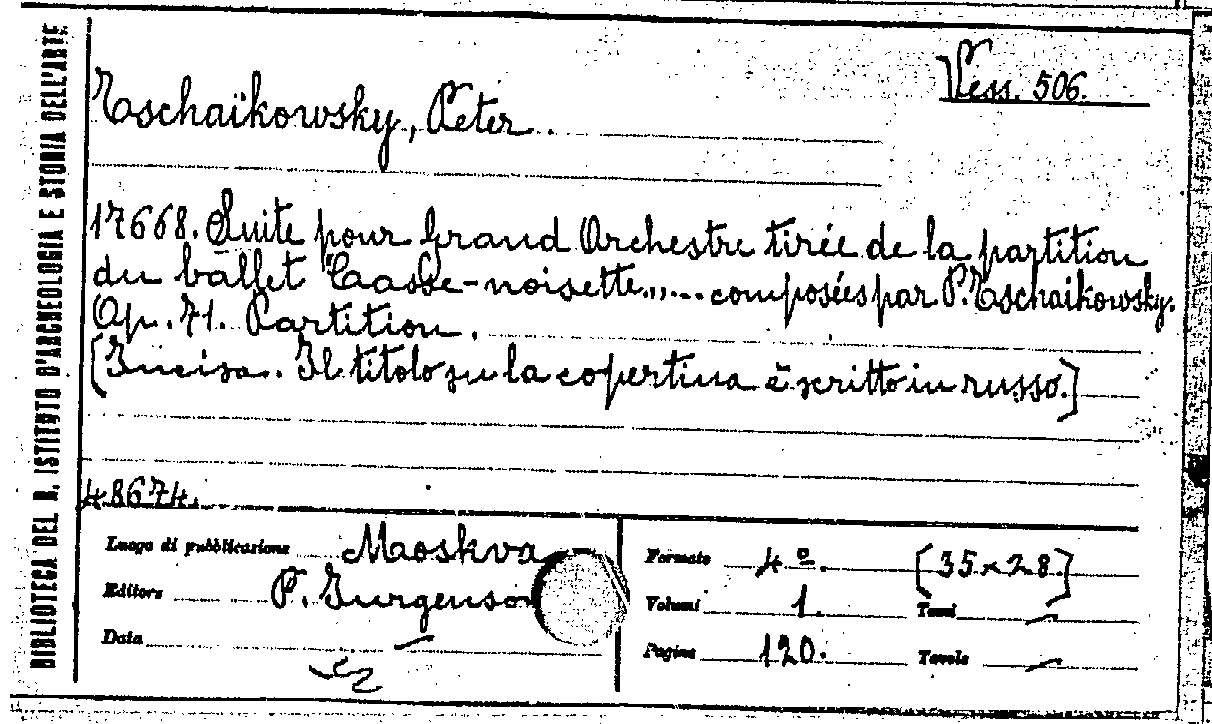 BIBLIOTECA DEL R. ISTITUTO D'ARCHEOLOGIA E STORIA DELL'ARTE
Vess. 506.
Tschaïkowsky, Peter.
17668. Suite pour Grand Orchestre tirée de la partition
du ballet Casse-noisette,.... composées par P. Tschaikowsky.
Op. 71. Partition.
[Incisa. Il titolo su la copertina è scritto in russo.]
48674.
Luogo di pubblicazione Maoskva
Editore P. Jurgenson
Data —
Formato 4º. [35x28.]
Volumi 1. Tomi —
Pagine 120. Tavole —